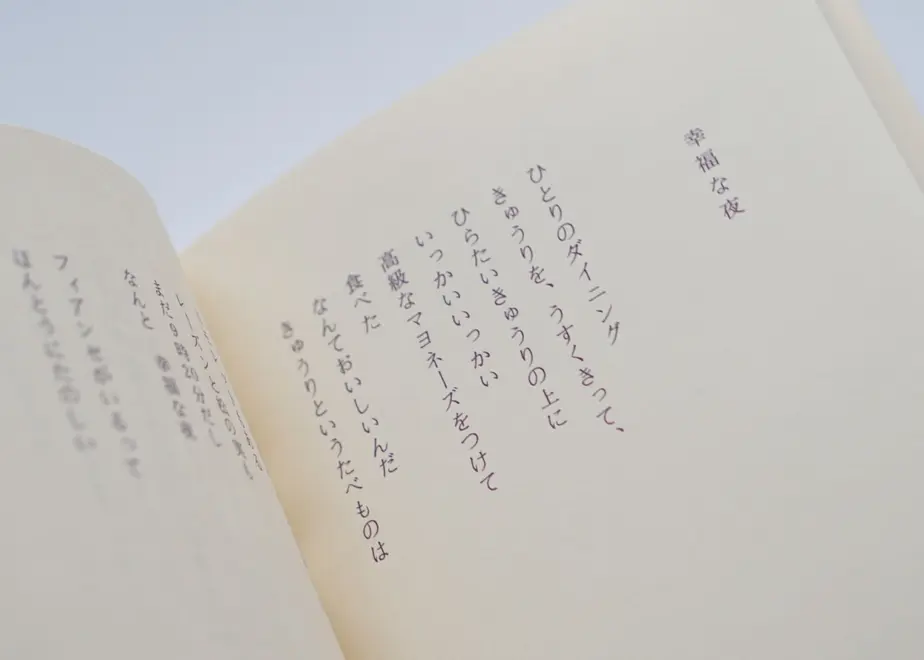 幸福な夜
ひとりのダイニング
きゅうりを、うすくきって、
ひらたいきゅうりの上に
いっかいいっかい
高級なマヨネーズをつけて
食べた
なんておいしいんだ
きゅうりというたべものは
まだ9時20分だし
なんと 幸福な夜
フィアンセがいるって
ほんとうにたのしい